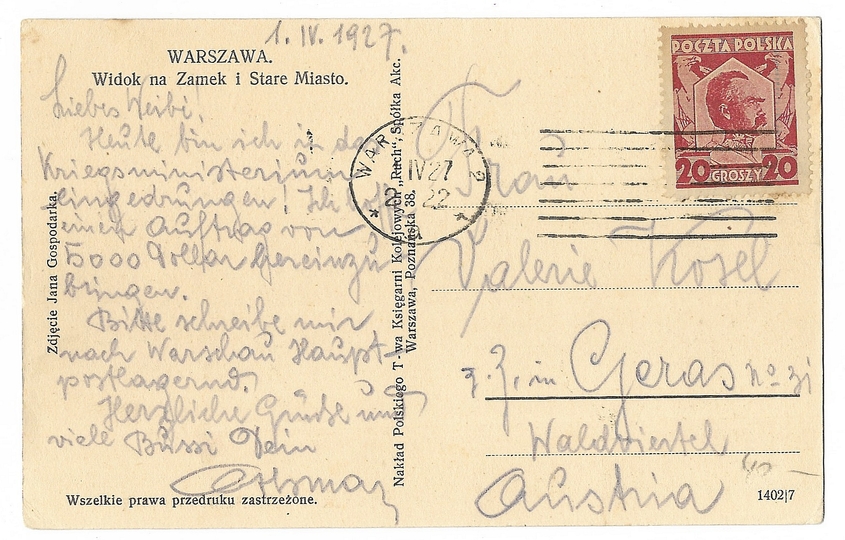 1. IV. 1927.
WARSZAWA.
Widok na Zamek i Stare Miasto.
Liebes Weibi!
Heute bin ich in das
Kriegsministerium
eingedrungen! Ich hoff
einen Auftrag von
5000 Dollar hereinzu
bringen.
Bitte schreibe mir
nach Warschau Haupt-
postlagernd.
Herzliche Grüsse und
viele Bussi Dein
Wszelkie prawa przedruku zastrzeżone.
Zdjęcie Jana Gospodarka.
Nakład Polskiego T-wa Księgarni Kolejowych „Ruch", Spółka Akc.
Warszawa, Poznańska 38.
POCZTA POLSKA
20 GROSZY 20
WARSZAWA 2
2 IV 27 22
Frau
Valerie Kosel
z. Z. in Geras No 31
Waldviertel
Austria
40 –
1402|7